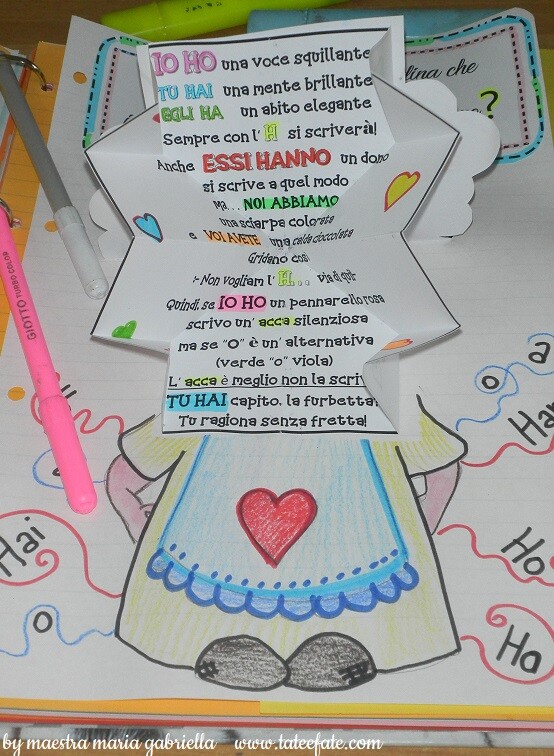 IO HO una voce squillante
TU HAI una mente brillante
EGLI HA un abito elegante
Sempre con l' H si scriverà!
Anche ESSI HANNO un dono
si scrive a quel modo
ma... NOI ABBIAMO
una sciarpa colorata
e VOI AVETE una calda cioccolata
Gridano così
:- Non vogliam l' H... via di qui!-
Quindi, se IO HO un pennarello rosa
scrivo un' acca silenziosa
ma se "O" è un' alternativa
(verde "o" viola)
L' acca è meglio non la scriv
TU HAI capito, la furbetta.
Tu ragiona senza fretta!
lina che
?
GIOTTO TURBO COLOR
a
o
Han
Hai
Ho
o
Ha
by maestra maria gabriella www.tateefate.com